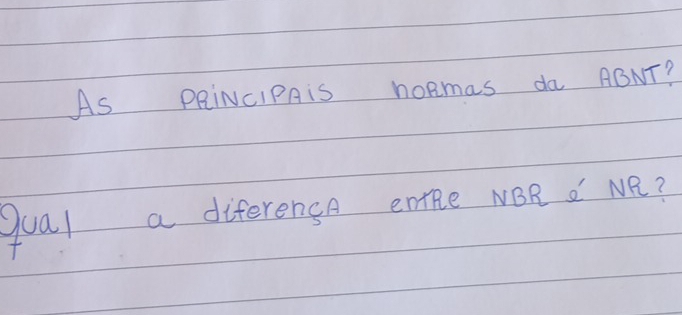 As PRiNCiPAiS noRmas da ABNT?
Qual a diferençA entRe NBR é NR?